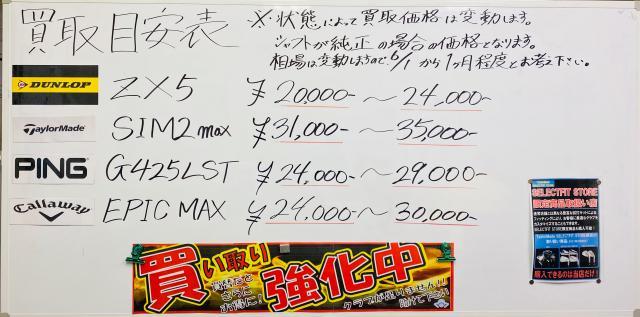 買取目安表
※状態によって買取価格は変動します。
シャフトが純正の場合の価格となります。
相場は変動しますので、6/1から1ヶ月程度とお考え下さい。
DUNLOP ZX5 ¥20,000-～24,000-
TaylorMade SIM2 max ¥31,000-～35,000-
PING G425LST ¥24,000-～29,000-
Callaway EPIC MAX ¥24,000-～30,000-
買い取り強化中
さらに
お得に!
クラブが足りません!!
助けて下さい
SELECTFIT STORE
限定商品取扱い店
購入できるのは当店だけ!